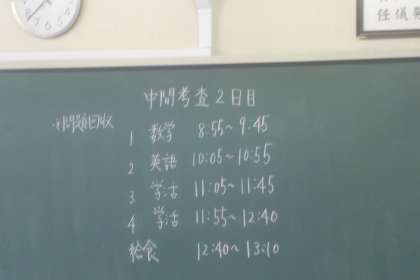 任儀
中間考査2日目
※問題回収
1 数学 8:55~9:45
2 英語 10:05~10:55
3 学活 11:05~11:45
4 学活 11:55~12:40
給食 12:40~13:10